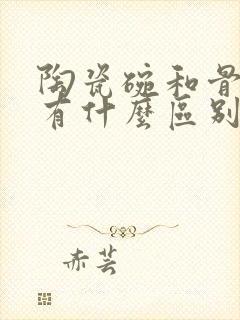 陶瓷碗和骨
有什麼區别
赤芸